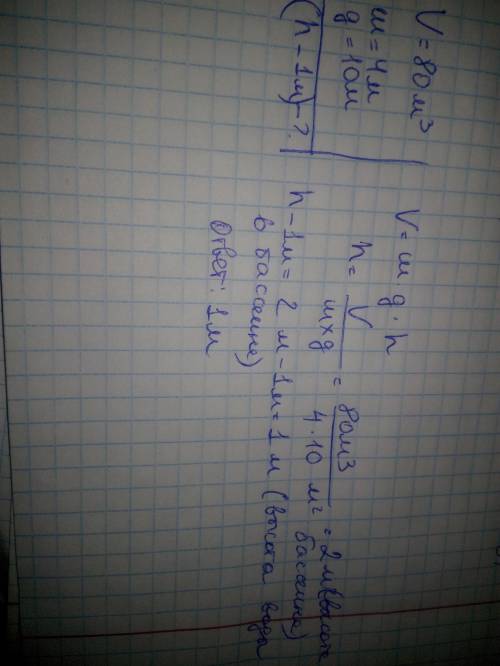 V = 80 м³
ш = 4 м
g = 10 м
(h - 1 м) - ?
V = ш g · h
h = V / ш × g = 80 м³ / 4 · 10 м² = 2 м (высота
бассейна)
h - 1 м = 2 м - 1 м = 1 м (высота воды
в бассейне)
Ответ: 1 м